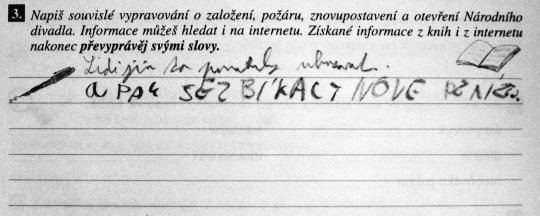 3. Napiš souvislé vypravování o založení, požáru, znovupostavení a otevření Národního
divadla. Informace můžeš hledat i na internetu. Získané informace z knih i z internetu
nakonec převyprávěj svými slovy.
Lidi jim to pomohly
A PAK SEZBÍKALY NOVE PENIZE.